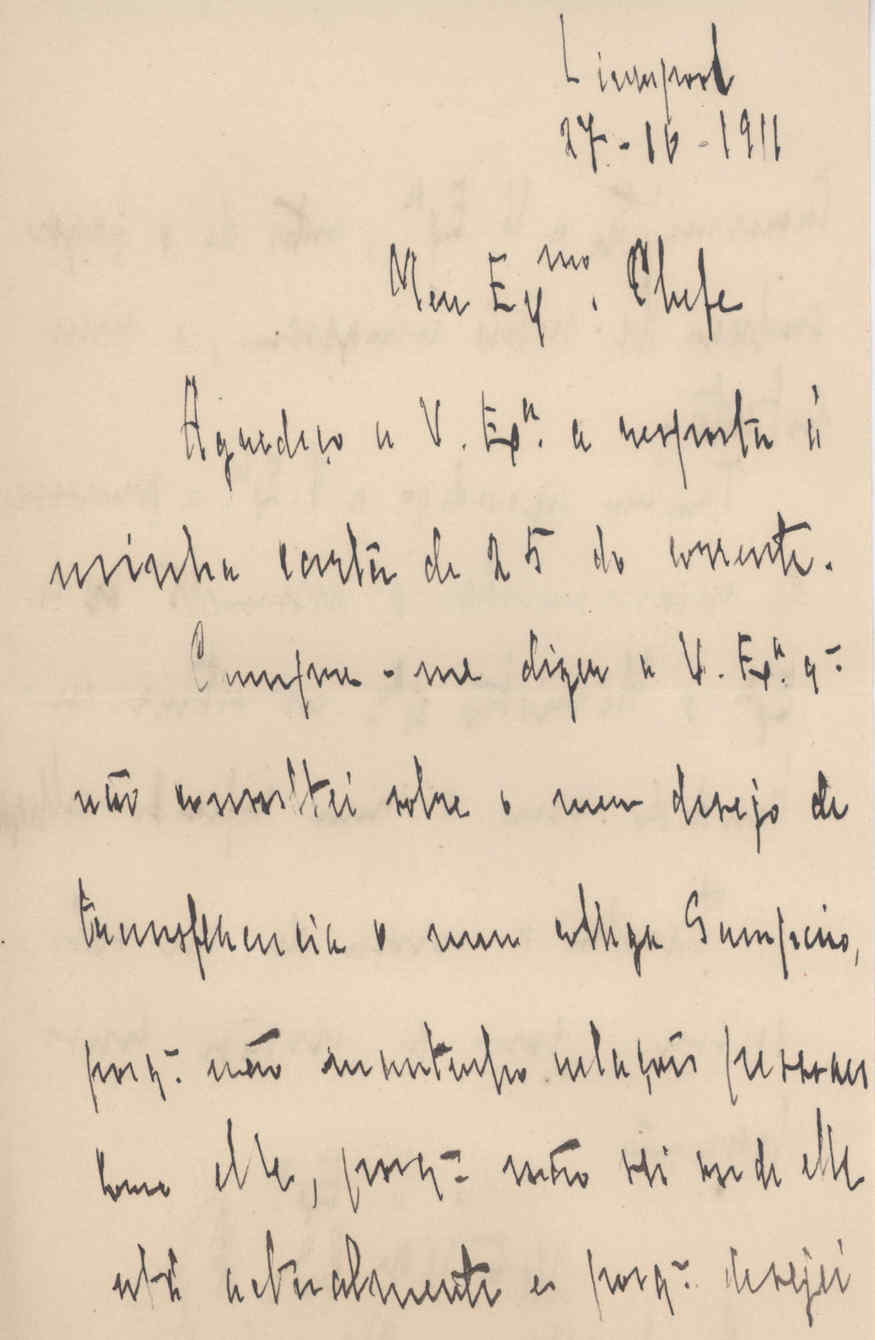 Liverpool
27-10-1911
Meu Exmo. Chefe
Agradeço a V. Exa. a resposta á
minha carta de 25 do corrente.
Cumpre-me dizer a V. Exa. q-
não consultei sobre o meu desejo de
transferencia o meu collega Sampaio,
porq- não mantenho relações pessoaes
com elle, porq- não sei onde elle
está actualmente e porq- desejei